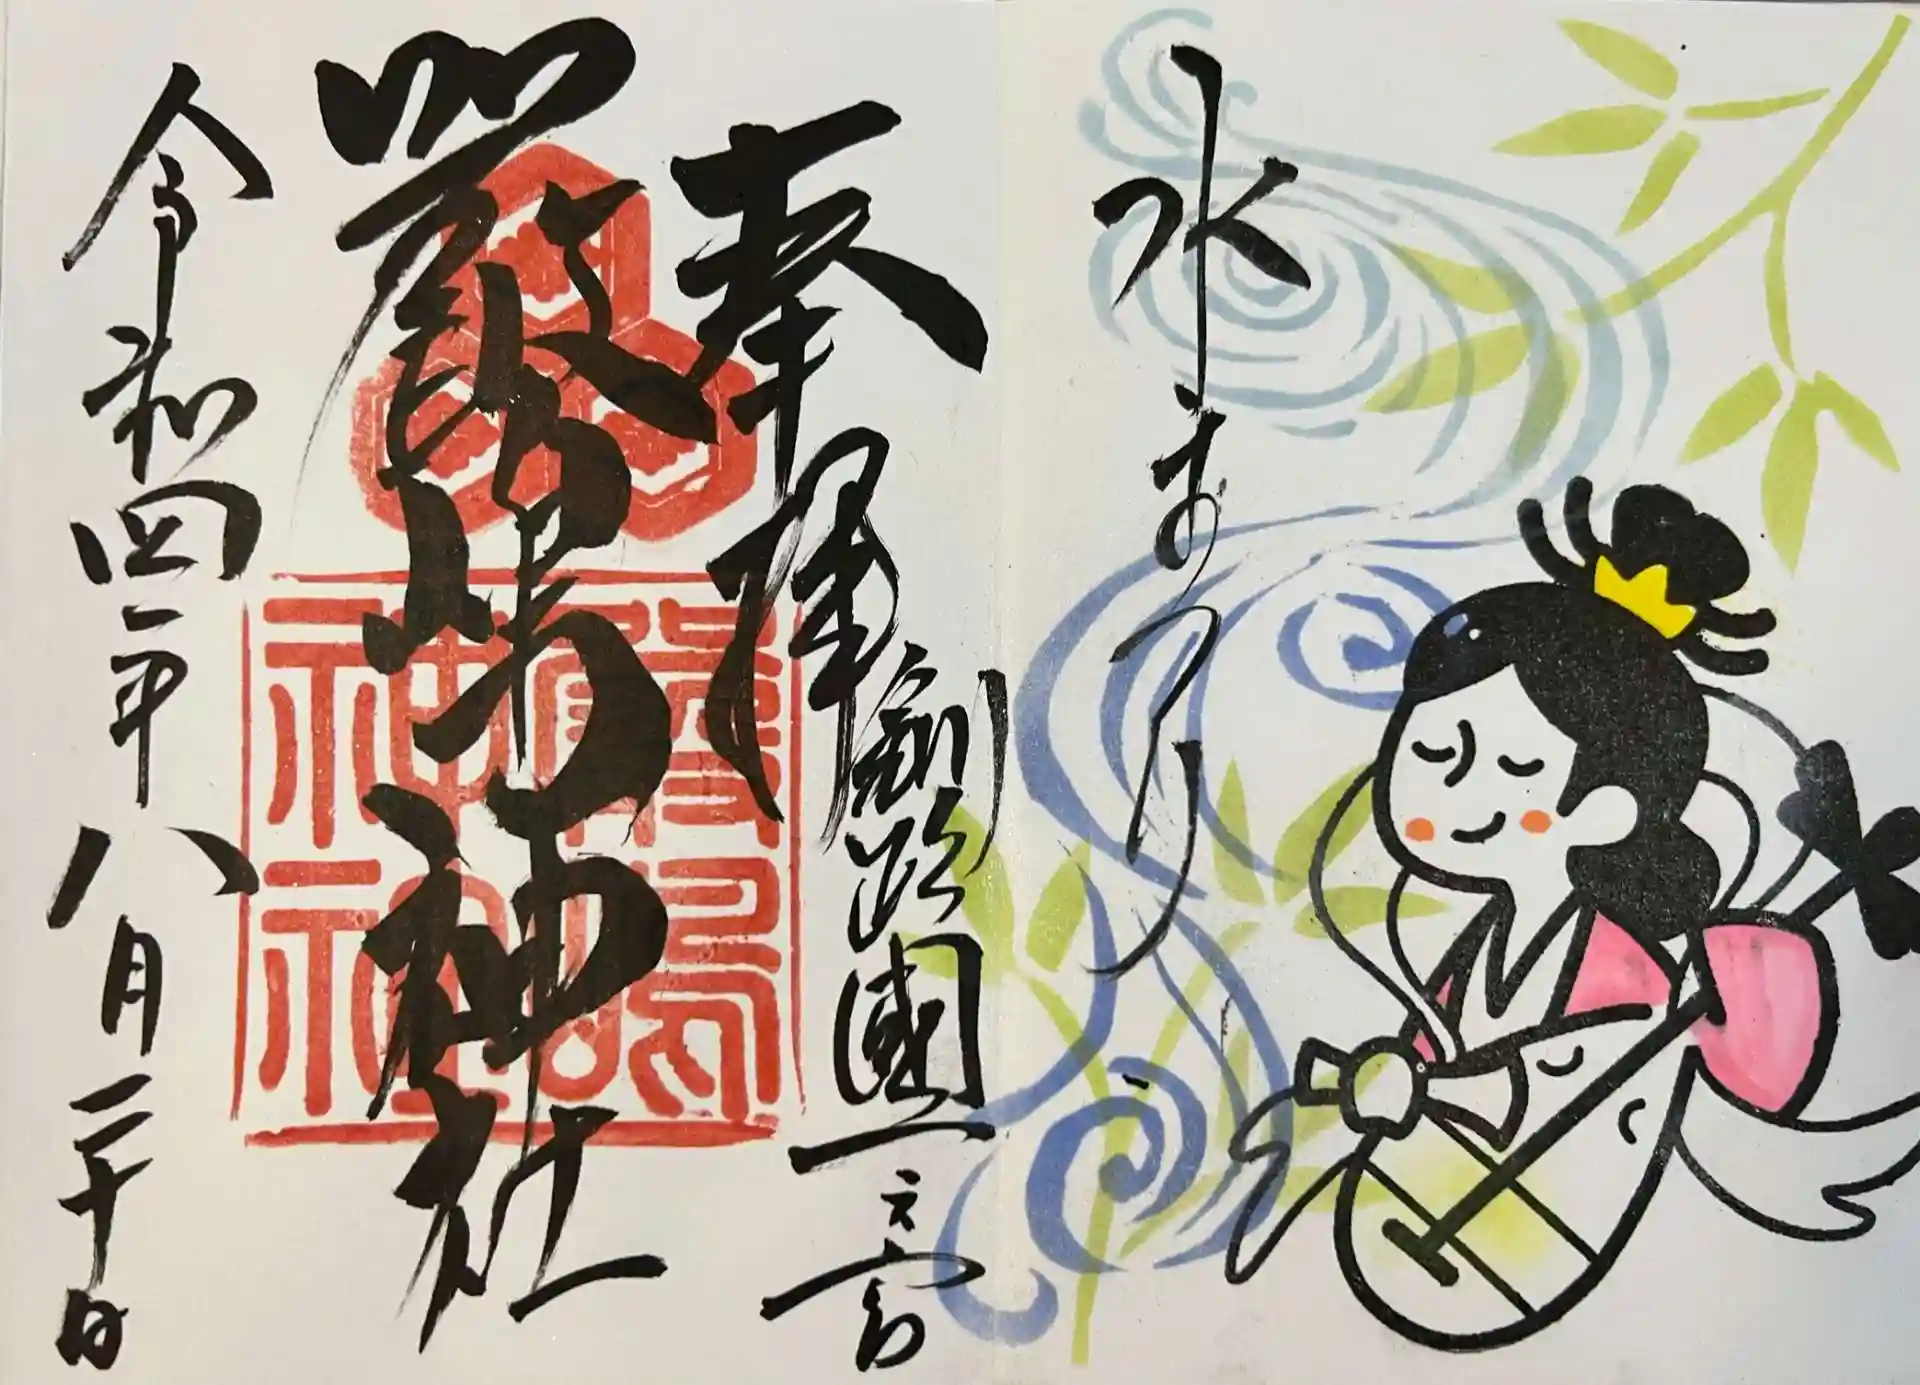 水まつり
奉拝
釧路國一之宮
厳島神社
嚴島
神社
令和四年八月二十日